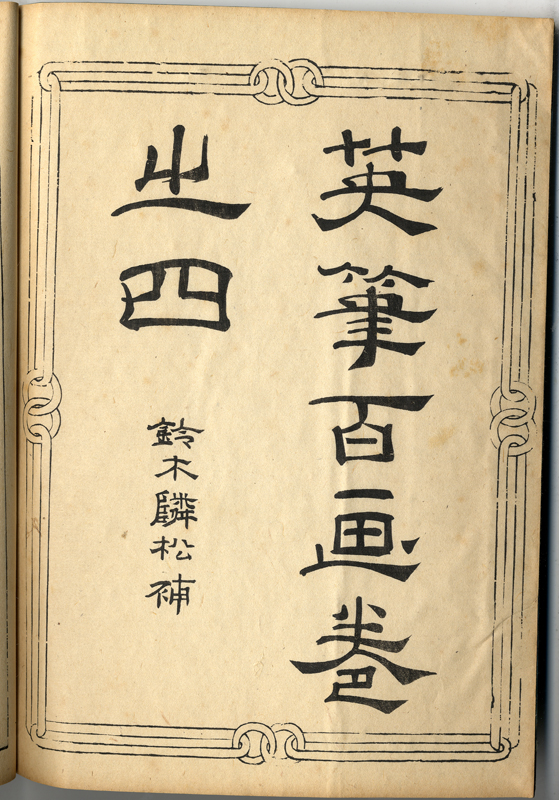 英筆百画巻
之四
鈴木驎松補